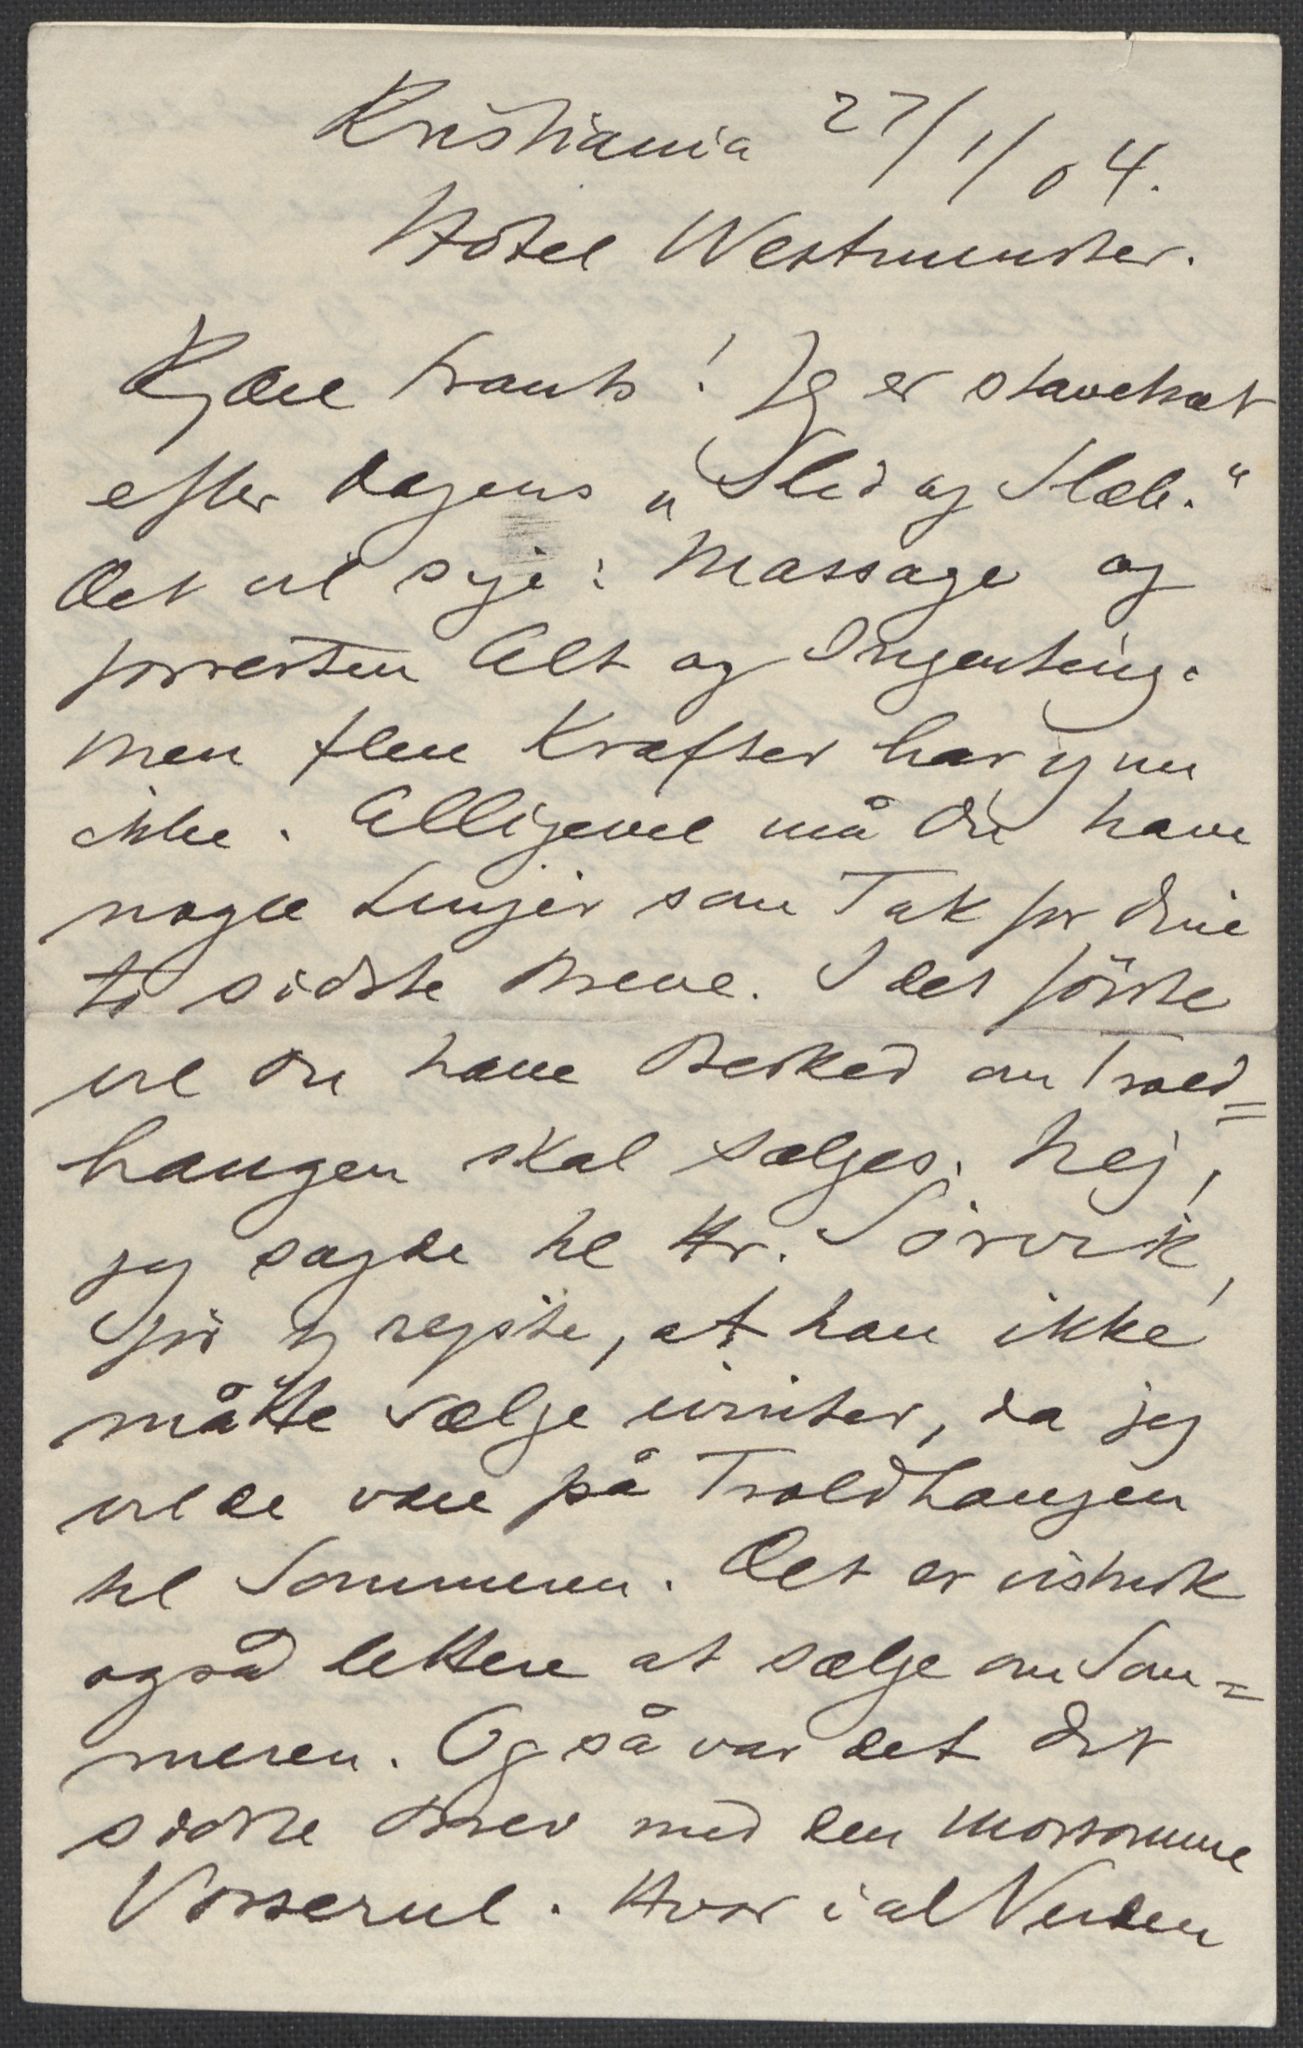 Kristiania 27/1/04.
Hôtel Westminster.
Kjære Frants! Jeg er stavetræt
efter Dagens „Slid og Slæb.“
Det vil sige: Massage og
forresten Alt og Ingenting.
Men flere Kræfter har jeg nu
ikke. Alligevel må Du have
nogle Linjer som Tak for dine
to sidste Breve. I det første
vil Du have Besked om Trold=
haugen skal sælges. Nej,
jeg sagde til Hr. Sörvik,
før jeg rejste, at han ikke
måtte sælge ivinter, da jeg
vilde være på Troldhaugen
til Sommeren. Det er vistnok
også lettere at sælge om Som=
meren. Og så var det dit
sidste Brev med den morsomme
Vosserul. Hvor i al Verden